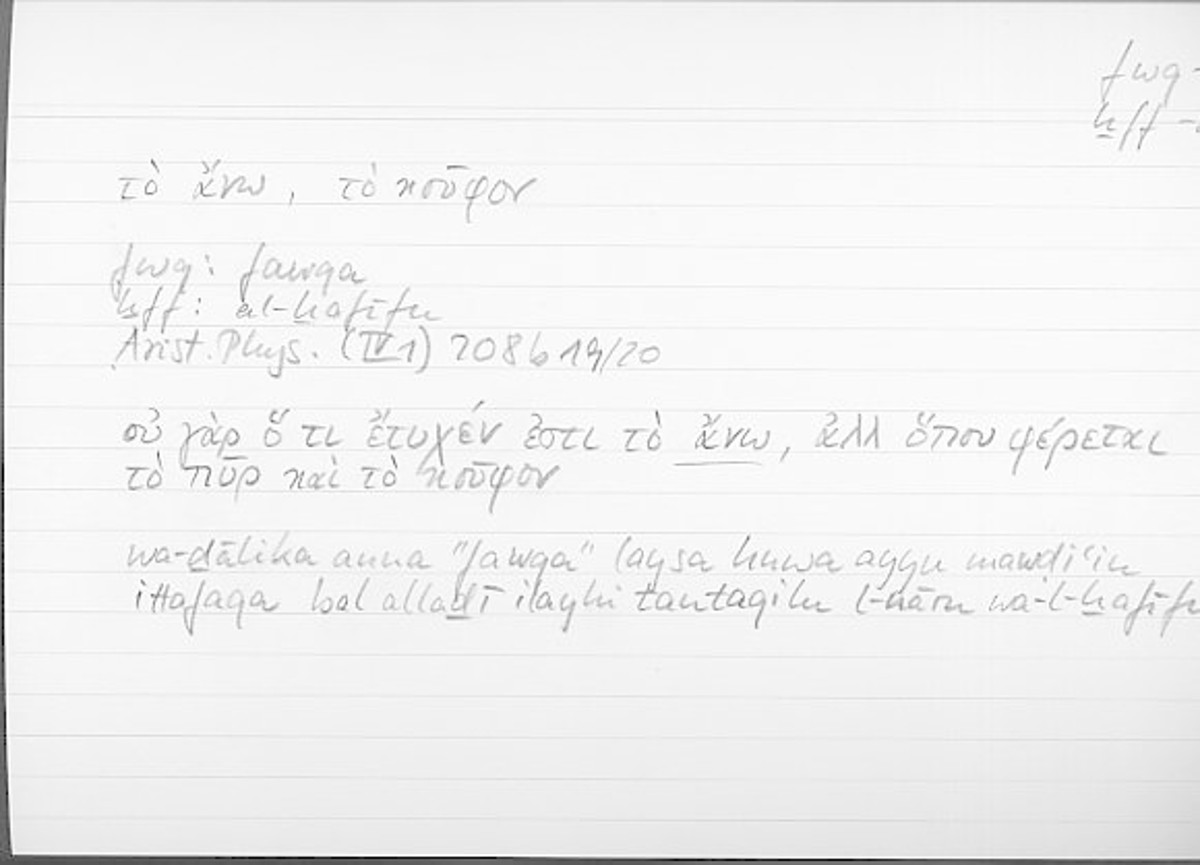 fwq-
ḫff -
τὸ ἄνω, τὸ κοῦφον
fwq: fawqa
ḫff: al-ḫafīfu
Arist. Phys. (IV 1) 208 b 19/20
οὐ γὰρ ὅ τι ἔτυχέν ἐστι τὸ ἄνω, ἀλλ ὅπου φέρεται
τὸ πῦρ καὶ τὸ κοῦφον
wa-ḏālika anna "fawqa" laysa huwa ayyu mawḍiʿin
ittafaqa bal allaḏī ilayhi tantaqilu l-nāru wa-l-ḫafīfu